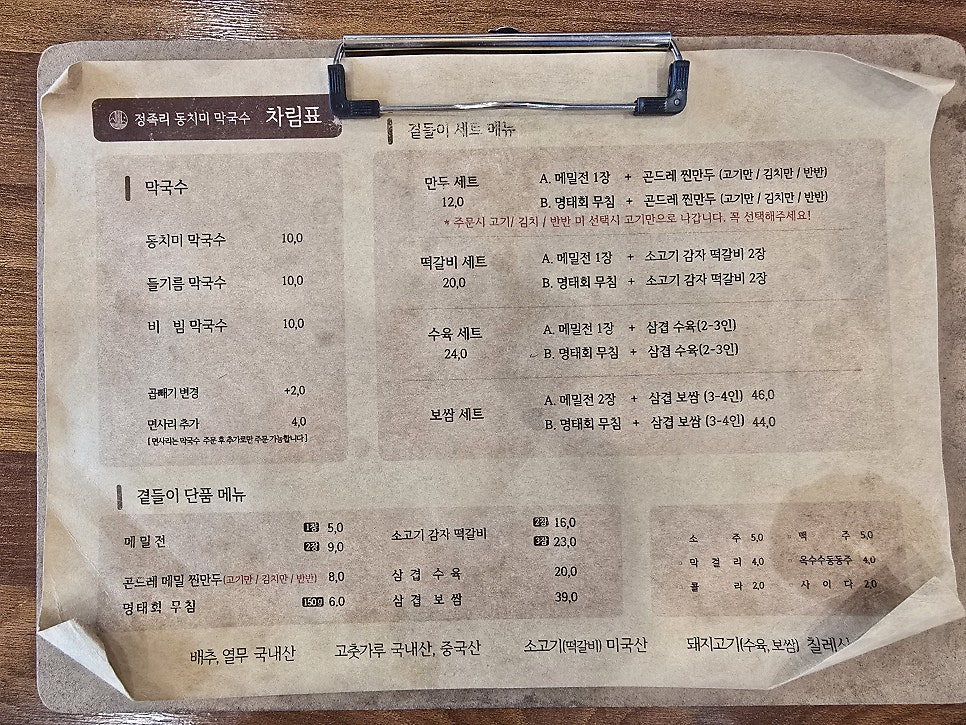 정족리 동치미 막국수 차림표
막국수
동치미 막국수 10,0
들기름 막국수 10,0
비 빔 막국수 10,0
곱빼기 변경 +2,0
면사리 추가 4,0
[ 면사리는 막국수 주문 후 추가로만 주문 가능합니다 ]
곁들이 세트 메뉴
만두 세트
12,0
A. 메밀전 1장 + 곤드레 찐만두 (고기만 / 김치만 / 반반)
B. 명태회 무침 + 곤드레 찐만두 (고기만 / 김치만 / 반반)
* 주문시 고기/ 김치 / 반반 미 선택시 고기만으로 나갑니다. 꼭 선택해주세요!
떡갈비 세트
20,0
A. 메밀전 1장 + 소고기 감자 떡갈비 2장
B. 명태회 무침 + 소고기 감자 떡갈비 2장
수육 세트
24,0
A. 메밀전 1장 + 삼겹 수육(2-3인)
B. 명태회 무침 + 삼겹 수육(2-3인)
보쌈 세트
A. 메밀전 2장 + 삼겹 보쌈 (3-4인) 46,0
B. 명태회 무침 + 삼겹 보쌈 (3-4인) 44,0
곁들이 단품 메뉴
메밀전 1장 5,0
2장 9,0
곤드레 메밀 찐만두(고기만 / 김치만 / 반반) 8,0
명태회 무침 150g 6,0
소고기 감자 떡갈비 2장 16,0
3장 23,0
삼 겹 수 육 20,0
삼 겹 보 쌈 39,0
소 주 5,0 맥 주 5,0
막 걸 리 4,0 옥수수동동주 4,0
콜 라 2,0 사 이 다 2,0
배추, 열무 국내산 고춧가루 국내산, 중국산 소고기(떡갈비) 미국산 돼지고기(수육, 보쌈) 칠레산